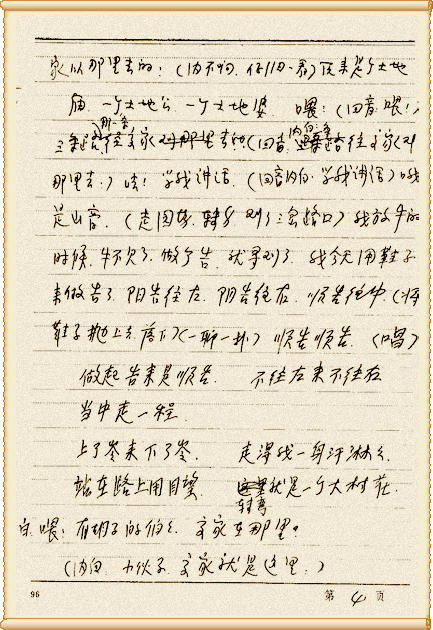 家从那里去的：（内不响，仔细一看）原来是个土地
庙 一个土地公 一个土地婆 喂！（回音 喂！）
那一条 内白：一条
三条路往文家 那里去（回音 路往文家
那里去）咦！学我讲话，（回音内白 学我讲话）哦
是山音，（走回 转身 到了三岔路口）我放牛的
时候，牛不见了，做个告，就寻到了，我今天用鞋子
来做告了，阳告往左，阴告往右，顺告往中（将
鞋子抛上去落下）（一聊一卦）顺告顺告 （唱）
做起告来是顺告 不往左来不往右
当中走一程
上了岑来下了岑 走得我一身汗淋淋
站在路上用目望 就是一个大村庄
转弯
白：喂！有胡子的伯伯 文家在那里？
（内白 小伙子 文家就是这里）
96 第 4 页